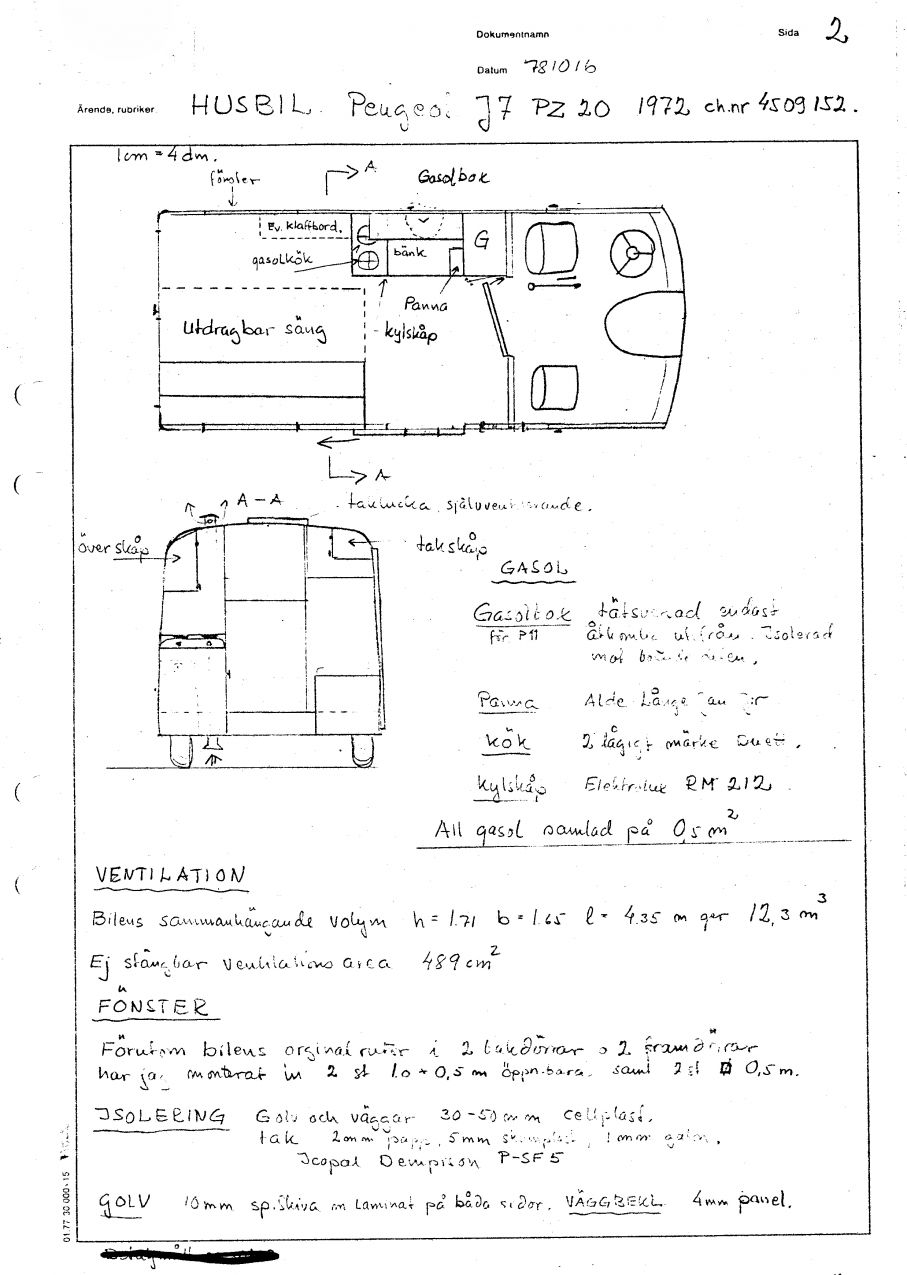 Dokumentnamn
Sida 2
Datum 781016
Ärende, rubriker HUSBIL. Peugeot J7 PZ 20 1972 ch.nr 4509152.
1cm = 4dm.
fönster
A
Gasolbox
Ev. klaffbord.
gasolkök
bänk
G
Panna
kylskåp
Utdragbar säng
A
A-A
taklucka självventilerande.
överskåp
takskåp
GASOL
Gasolbox tätsvetsad endast
för P11 åtkomlig utifrån. Isolerad
mot boende delen.
Panna Alde
Kök 2 lågigt märke Duett.
Kylskåp Elektrolux RM 212
All gasol samlad på 0,5 m²
VENTILATION
Bilens sammanhängande volym h = 1.71 b = 1.65 l = 4.35 m ger 12,3 m³
Ej stängbar ventilations area 489 cm²
FÖNSTER
Förutom bilens orginal rutor i 2 bakdörrar o 2 framdörrar
har jag monterat in 2 st 1.0 * 0,5 m öppn.bara. samt 2 st 0,5 m.
ISOLERING Golv och väggar 30-50 mm cellplast.
tak 2mm papp, 5mm 1mm galon.
Icopal P-SF5
GOLV 10mm sp.skiva m laminat på båda sidor. VÄGGBEKL 4mm panel.
01 77 30 000-15